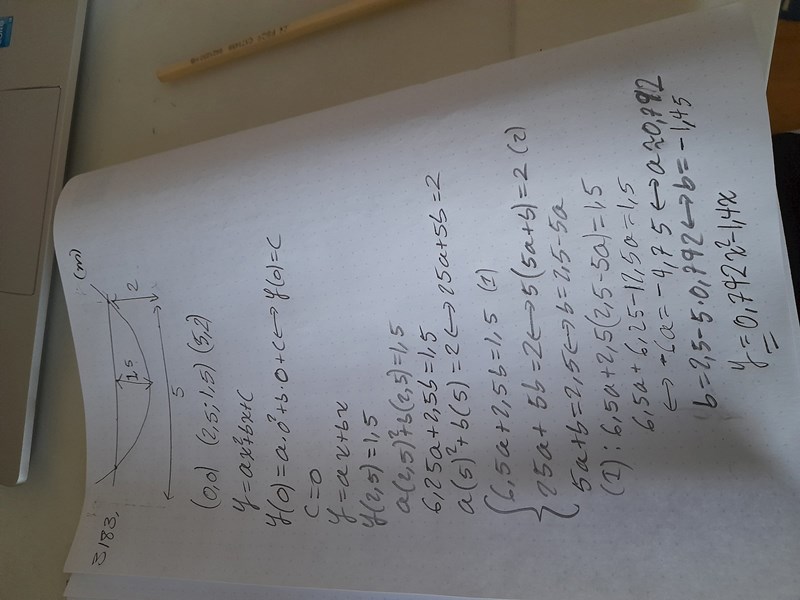 3183.
(m)
1,5
2
5
(0,0) (2,5;1,5) (5,2)
y=ax²+bx+c
y(0)=a·0²+b·0+c↔y(0)=c
c=0
y=ax+bx
y(2,5)=1,5
a(2,5)²+b(2,5)=1,5
6,25a+2,5b=1,5
a(5)²+b(5)=2↔25a+5b=2
{6,5a+2,5b=1,5 (1)
25a+5b=2↔5(5a+b)=2 (2)
5a+b=2,5↔b=2,5-5a
(1):6,5a+2,5(2,5-5a)=1,5
6,5a+6,25-12,5a=1,5
↔-6a=-4,75↔a≈0,792
b=2,5-5·0,792↔b=-1,45
y=0,792x²-1,4x